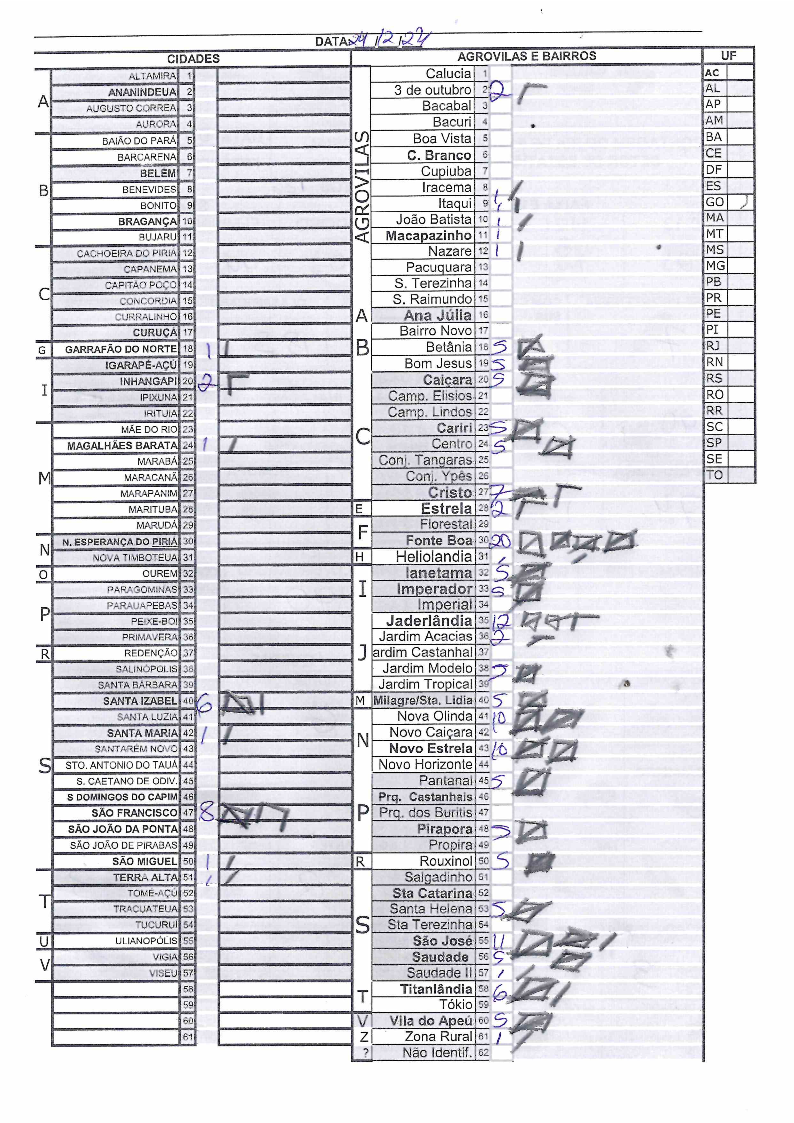 DATA: 24/12/24
CIDADES
A
ALTAMIRA 1
ANANINDEUA 2
AUGUSTO CORREA 3
AURORA 4
B
BAIÃO DO PARÁ 5
BARCARENA 6
BELÉM 7
BENEVIDES 8
BONITO 9
BRAGANÇA 10
BUJARU 11
C
CACHOEIRA DO PIRIA 12
CAPANEMA 13
CAPITÃO POÇO 14
CONCORDIA 15
CURRALINHO 16
CURUÇA 17
G
GARRAFÃO DO NORTE 18 1
I
IGARAPÉ-AÇÚ 19
INHANGAPI 20 2
IPIXUNA 21
IRITUIA 22
M
MÃE DO RIO 23
MAGALHÃES BARATA 24 1
MARABÁ 25
MARACANÃ 26
MARAPANIM 27
MARITUBA 28
MARUDÁ 29
N
N. ESPERANÇA DO PIRIA 30
NOVA TIMBOTEUA 31
O
OUREM 32
P
PARAGOMINAS 33
PARAUAPEBAS 34
PEIXE-BOI 35
PRIMAVERA 36
R
REDENÇÃO 37
S
SALINÓPOLIS 38
SANTA BÁRBARA 39
SANTA IZABEL 40 6
SANTA LUZIA 41
SANTA MARIA 42 1
SANTARÉM NOVO 43
STO. ANTONIO DO TAUÁ 44
S. CAETANO DE ODIV. 45
S DOMINGOS DO CAPIM 46
SÃO FRANCISCO 47 8
SÃO JOÃO DA PONTA 48
SÃO JOÃO DE PIRABAS 49
SÃO MIGUEL 50 1
T
TERRA ALTA 51 1
TOMÉ-AÇÚ 52
TRACUATEUA 53
TUCURUI 54
U
ULIANOPÓLIS 55
V
VIGIA 56
VISEU 57
58
59
60
61
AGROVILAS E BAIRROS
AGROVILAS
Calucia 1
3 de outubro 2 2
Bacabal 3
Bacuri 4
Boa Vista 5
C. Branco 6
Cupiuba 7
Iracema 8
Itaqui 9 1
João Batista 10 1
Macapazinho 11 1
Nazare 12 1
Pacuquara 13
S. Terezinha 14
S. Raimundo 15
A
Ana Júlia 16
B
Bairro Novo 17
Betânia 18 5
Bom Jesus 19 5
C
Caiçara 20 5
Camp. Elisios 21
Camp. Lindos 22
Cariri 23 5
Centro 24 5
Conj. Tangaras 25
Conj. Ypês 26
Cristo 27 7
E
Estrela 28 2
F
Florestal 29
Fonte Boa 30 20
H
Heliolandia 31 1
I
Ianetama 32 5
Imperador 33 5
Imperial 34
J
Jaderlândia 35 12
Jardim Acacias 36 2
ardim Castanhal 37
Jardim Modelo 38 5
Jardim Tropical 39
M
Milagre/Sta. Lidia 40 5
N
Nova Olinda 41 10
Novo Caiçara 42
Novo Estrela 43 10
Novo Horizonte 44
P
Pantanal 45 5
Prq. Castanhais 46
Prq. dos Buritis 47
Pirapora 48 5
Propira 49
R
Rouxinol 50 5
S
Salgadinho 51
Sta Catarina 52
Santa Helena 53 5
Sta Terezinha 54
São José 55 11
Saudade 56 5
Saudade II 57 1
T
Titanlândia 58 6
Tókio 59
V
Vila do Apeú 60 5
Z
Zona Rural 61 1
?
Não Identif. 62
UF
AC
AL
AP
AM
BA
CE
DF
ES
GO
MA
MT
MS
MG
PB
PR
PE
PI
RJ
RN
RS
RO
RR
SC
SP
SE
TO